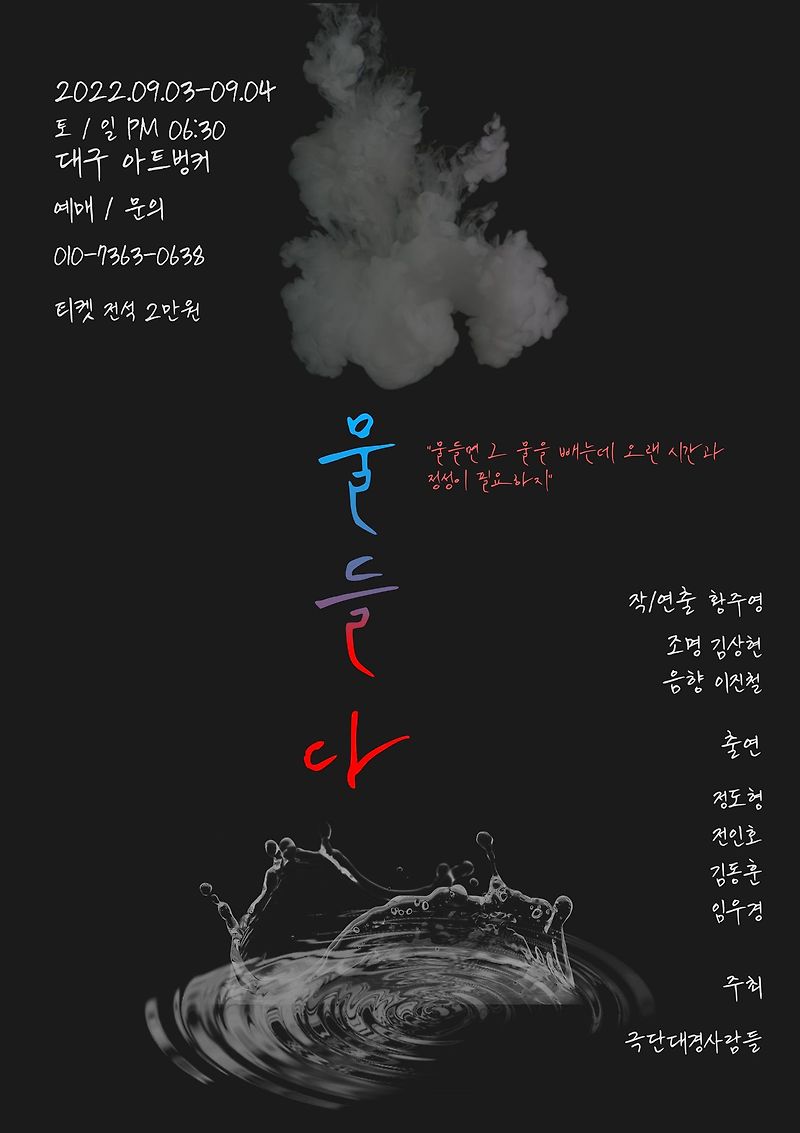 2022.09.03-09.04
토 / 일 PM 06:30
대구 아트벙커
예매 / 문의
010-7363-0638
티켓 전석 2만원
물
들
다
"물들면 그 물을 빼는데 오랜 시간과
정성이 필요하지"
작/연출 황주영
조명 김상현
음향 이진철
출연
정도형
전인호
김동훈
임우경
주최
극단대경사람들